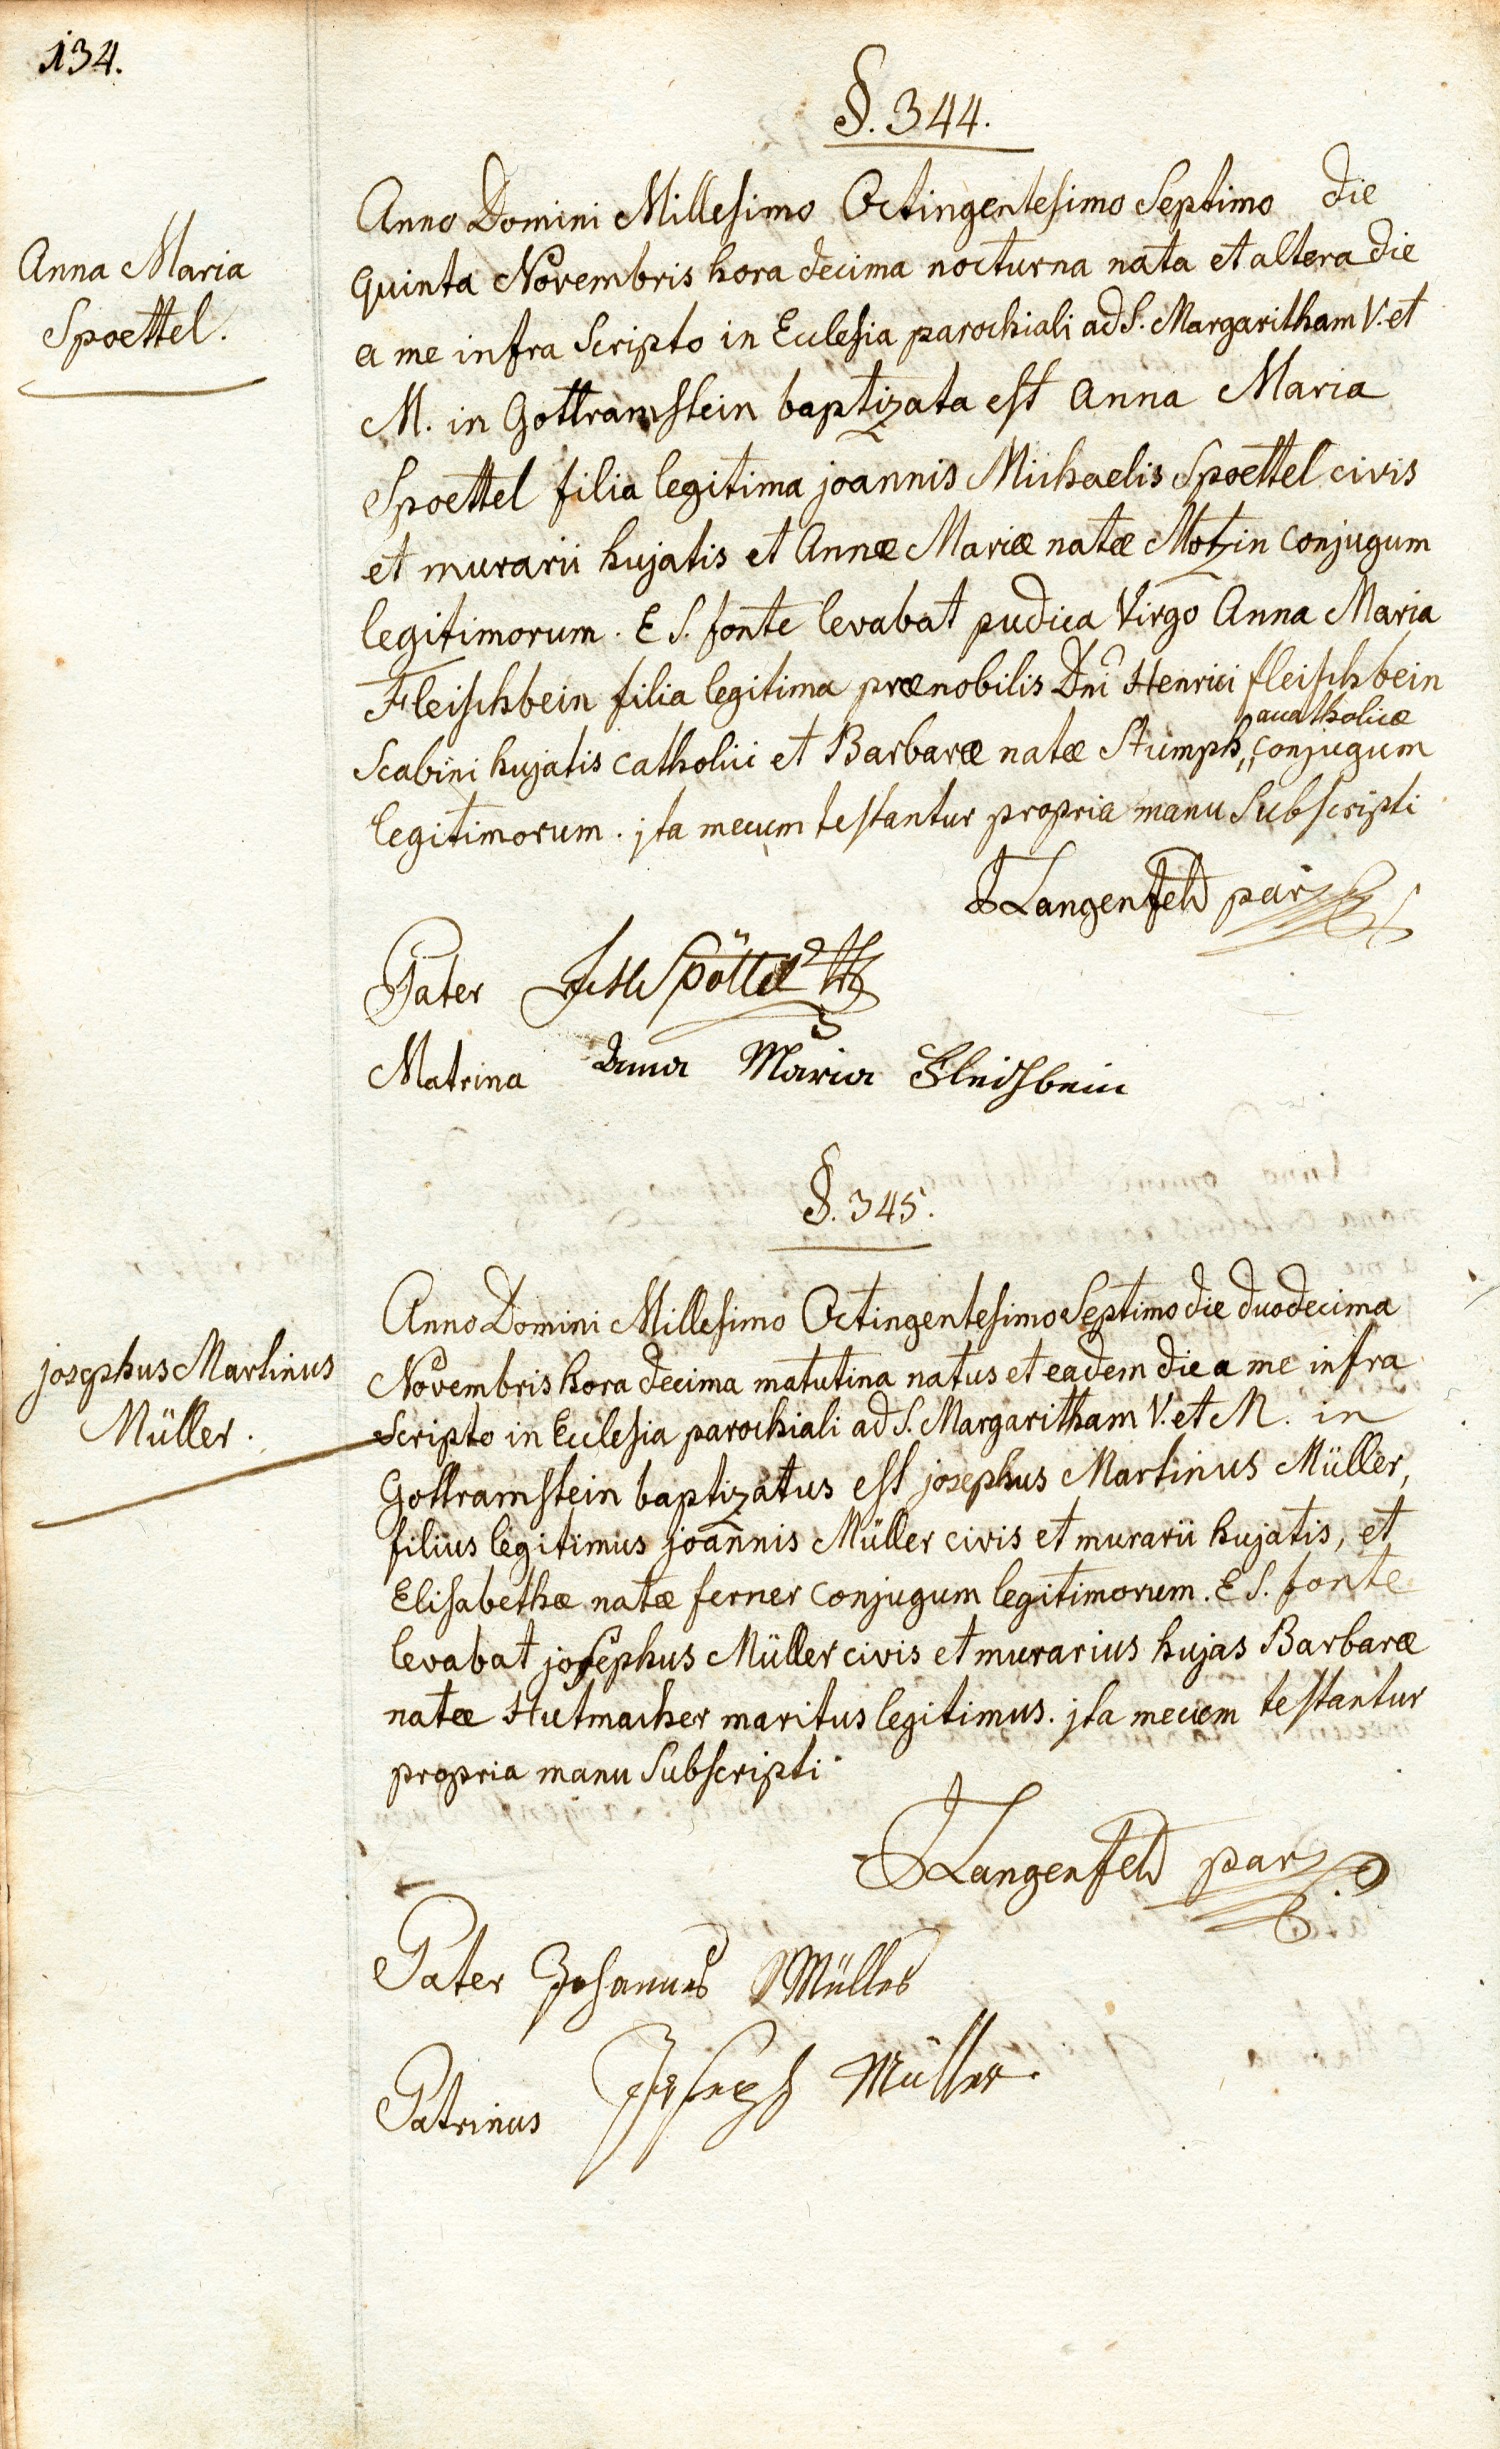 134.
§. 344.
Anna Maria
Spoettel.
Anno Domini Millesimo Octingentesimo Septimo die
Quinta Novembris hora decima nocturna nata et altera die
a me infra Scripto in Ecclesia parochiali ad S. Margaritham V. et
M. in Gottramstein baptizata est Anna Maria
Spoettel filia legitima joannis Michaelis Spoettel civis
et murarii hujatis et Annæ Mariæ natæ Motzin Conjugum
legitimorum. E S. fonte levabat pudica Virgo Anna Maria
Fleischbein filia legitima prænobilis Dni Henrici fleischbein
acatholicæ
Scabini hujatis Catholici et Barbaræ natæ Stumph,, Conjugum
legitimorum. jta mecum testantur propria manu Subscripti
Langenfeld par
Pater Spöttel
Matrina Anna Maria Fleisbein
§. 345.
josephus Martinus
Müller.
Anno Domini Millesimo Octingentesimo Septimo die duodecima
Novembris hora decima matutina natus et eadem die a me infra
Scripto in Ecclesia parochiali ad S. Margaritham V. et M. in
Gottramstein baptizatus est josephus Martinus Müller,
filius legitimus joannis Müller civis et murarii hujatis, et
Elisabethæ natæ ferner Conjugum legitimorum. E S. fonte
levabat josephus Müller civis et murarius hujas Barbaræ
natæ Hutmacher maritus legitimus. jta mecum testantur
propria manu Subscripti
Langenfeld par
Pater Johannes Müller
Patrinus Joseph Müller